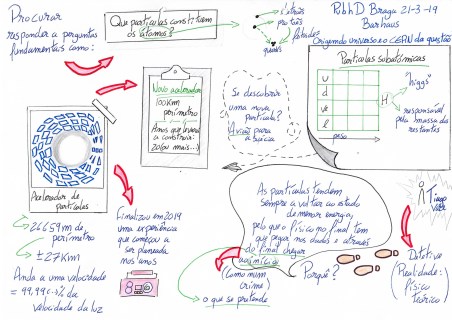 Procurar
responder a perguntas
fundamentais como:
Que partículas constituem
os átomos?
protões
quarks
PubhD Braga 21-3-19
Barhaus
Origem do universo e o CERN da questão
Partículas subatómicas
u
d
ve
e
H
"higgs"
responsável
pela massa das
restantes
peso
Novo acelerador
100Km
perímetro
Anos que levará
a construir:
20 (ou mais...)
Se descobrir
uma nova
partícula?
Avião para
a Suécia
Acelerador de
partículas
26659m de
perímetro
±27Km
Anda a uma velocidade
da
velocidade da luz
Finalizou em 2019
uma experiência
que começou a
ser planeada
nos anos
80
As partículas tendem
sempre a voltar ao estado
de menor energia,
pelo que o físico no final tem
que pegar nos dados e através
do final chegar
ao início
(Como num
crime)
o que se pretende
Porquê?
Tiago
Vale
Detetive
(Realidade:
físico
teórico)